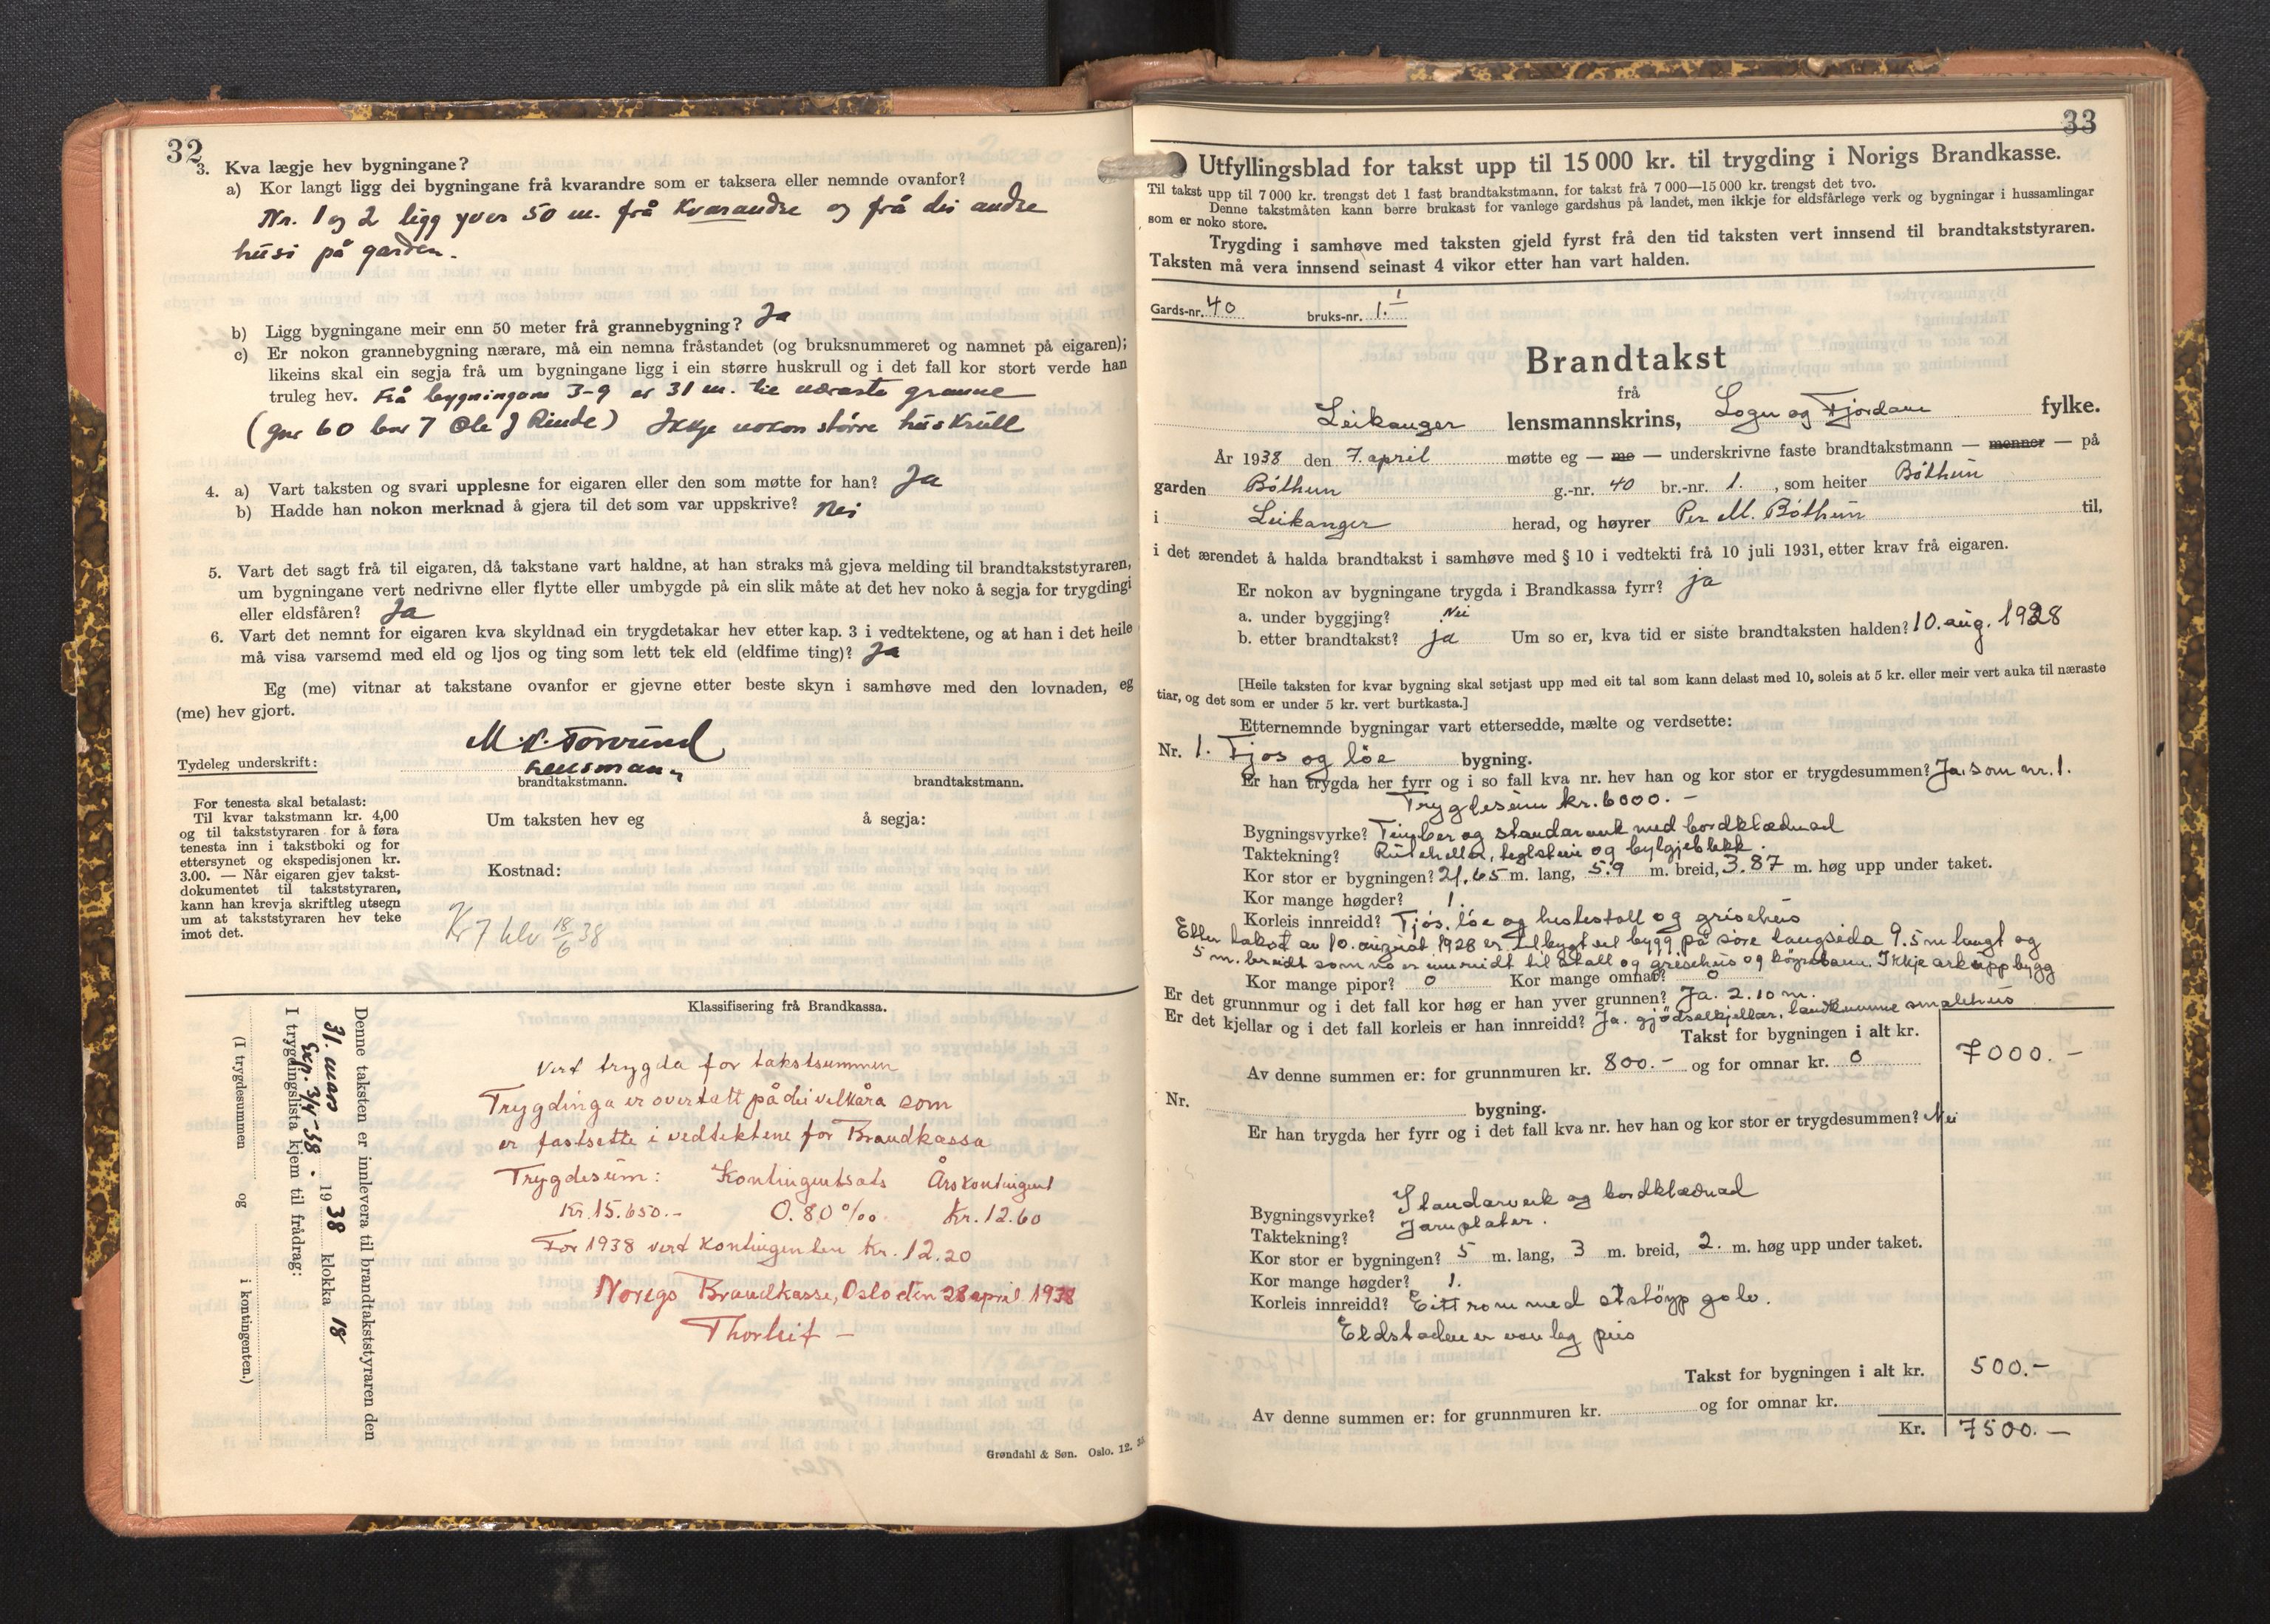 32
3. Kva lægje hev bygningane?
a) Kor langt ligg dei bygningane frå kvarandre som er taksera eller nemnde ovanfor?
Nr. 1 og 2 ligg yver 50 m. frå kvarandre og frå dei andre
husi på garden.
b) Ligg bygningane meir enn 50 meter frå grannebygning? Ja
c) Er nokon grannebygning nærare, må ein nemna fråstandet (og bruksnummeret og namnet på eigaren);
likeins skal ein segja frå um bygningane ligg i ein større huskrull og i det fall kor stort verde han
truleg hev. Frå bygningane 3-9 er 31 m. til næraste granne
(gnr 60 bnr 7 Ole J Rinde) Ikkje nokon større huskrull
4. a) Vart taksten og svari upplesne for eigaren eller den som møtte for han? Ja
b) Hadde han nokon merknad å gjera til det som var uppskrive? Nei
5. Vart det sagt frå til eigaren, då takstane vart haldne, at han straks må gjeva melding til brandtakststyraren,
um bygningane vert nedrivne eller flytte eller umbygde på ein slik måte at det hev noko å segja for trygdingi
eller eldsfåren? Ja
6. Vart det nemnt for eigaren kva skyldnad ein trygdetakar hev etter kap. 3 i vedtektene, og at han i det heile
må visa varsemd med eld og ljos og ting som lett tek eld (eldfime ting)? Ja
Eg (me) vitnar at takstane ovanfor er gjevne etter beste skyn i samhøve med den lovnaden, eg
(me) hev gjort.
Tydeleg underskrift:
lensmann
brandtakstmann. brandtakstmann.
For tenesta skal betalast:
Til kvar takstmann kr. 4,00
og til takststyraren for å føra
tenesta inn i takstboki og for
ettersynet og ekspedisjonen kr.
3.00. — Når eigaren gjev takst-
dokumentet til takststyraren,
kann han krevja skriftleg utsegn
um at takststyraren hev teke
imot det.
Um taksten hev eg å segja:
Kostnad:
Kr 7 18/6 38
Klassifisering frå Brandkassa.
Vert trygda for takstsummen
Trygdinga er overtatt på dei vilkåra som
er fastsette i vedtektene for Brandkassa
Trygdesum: Kontingentsats Årskontingent
Kr. 15.650.- 0.80 ‰ Kr. 12.60
For 1938 vert kontingenten kr. 12.20
Noregs Brandkasse, Oslo den 28 april 1938
Thorleif —
Denne taksten er innlevera til brandtakststyraren den
31. mars 1938 klokka 18
Exp. 3/4-38.
I trygdingslista kjem til frådrag:
(I trygdesummen og i kontingenten.)
Grøndahl & Søn. Oslo. 12.
33
Utfyllingsblad for takst upp til 15 000 kr. til trygding i Norigs Brandkasse.
Til takst upp til 7 000 kr. trengst det 1 fast brandtakstmann, for takst frå 7 000—15 000 kr. trengst det tvo.
Denne takstmåten kann berre brukast for vanlege gardshus på landet, men ikkje for eldsfårlege verk og bygningar i hussamlingar
som er noko store.
Trygding i samhøve med taksten gjeld fyrst frå den tid taksten vert innsend til brandtakststyraren.
Taksten må vera innsend seinast 4 vikor etter han vart halden.
Gards-nr. 40 bruks-nr. 1.
Brandtakst
frå
Leikanger lensmannskrins, Sogn og Fjordane fylke.
År 1938 den 7. april møtte eg — me — underskrivne faste brandtakstmann — menner — på
garden Böthun g.-nr. 40 br.-nr. 1. , som heiter Böthun
i Leikanger herad, og høyrer Per M. Böthun til,
i det ærendet å halda brandtakst i samhøve med § 10 i vedtekti frå 10 juli 1931, etter krav frå eigaren.
Er nokon av bygningane trygda i Brandkassa fyrr? ja
a. under byggjing? Nei
b. etter brandtakst? ja Um so er, kva tid er siste brandtaksten halden? 10. aug. 1928
[Heile taksten for kvar bygning skal setjast upp med eit tal som kann delast med 10, soleis at 5 kr. eller meir vert auka til næraste
tiar, og det som er under 5 kr. vert burtkasta.]
Etternemnde bygningar vart ettersedde, mælte og verdsette:
Nr. 1. Fjos og löe bygning.
Er han trygda her fyrr og i so fall kva nr. hev han og kor stor er trygdesummen? Ja. som nr. 1.
Trygdesum kr. 6000. -
Bygningsvyrke? Timber og standarverk med bordklædnad
Taktekning? Rutehellor, teglstein og bylgjeblekk.
Kor stor er bygningen? 21.65 m. lang, 5.9 m. breid, 3.87 m. høg upp under taket.
Kor mange høgder? 1.
Korleis innreidd? Fjös, löe og hestestall og grisehus
Etter takst av 10. august 1928 er tilbygt eit bygg på söre langsida 9.5 m langt og
5 m. breidt som no er innreidt til stall og grisehus og Ikkje ark uppbygg
Kor mange pipor? 0 Kor mange omnar? 0
Er det grunnmur og i det fall kor høg er han yver grunnen? Ja. 2.10 m.
Er det kjellar og i det fall korleis er han innreidd? Ja. gjödselkjellar, landkumme smalehus
Takst for bygningen i alt kr. 7000. -
Av denne summen er: for grunnmuren kr. 800.- og for omnar kr. 0
Nr. bygning.
Er han trygda her fyrr og i det fall kva nr. hev han og kor stor er trygdesummen? Nei
Bygningsvyrke? Standarverk og bordklædnad
Taktekning? Jarnplater.
Kor stor er bygningen? 5 m. lang, 3 m. breid, 2. m. høg upp under taket.
Kor mange høgder? 1.
Korleis innreidd? Eitt rom med støyp golv.
Eldstaden er vanleg
Takst for bygningen i alt kr. 500.-
Av denne summen er: for grunnmuren kr. og for omnar kr.
Kr. 7500. —